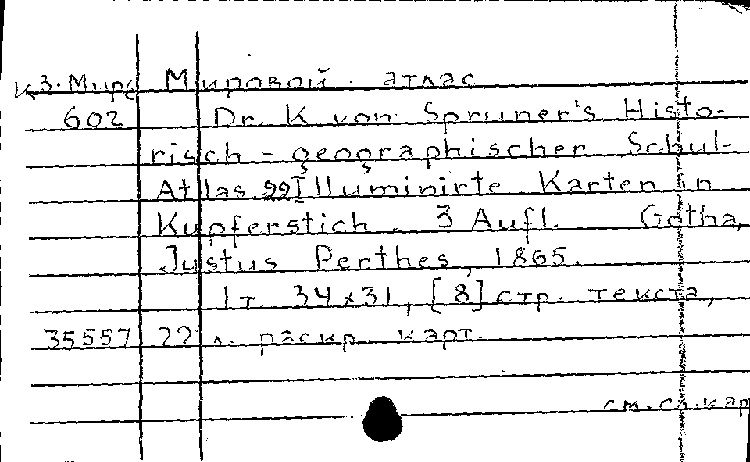 К3. Мира Мировой атлас
602 Dr. K. von Spruner's Histo-
risch-geographischer Schul-
Atlas 22 Illuminirte Karten in
Kupferstich. 3 Aufl. Gotha,
Justus Perthes, 1865.
1т. 34x31, [8] стр. текста,
35557 22 л. раскр. карт.
см. сл. кар